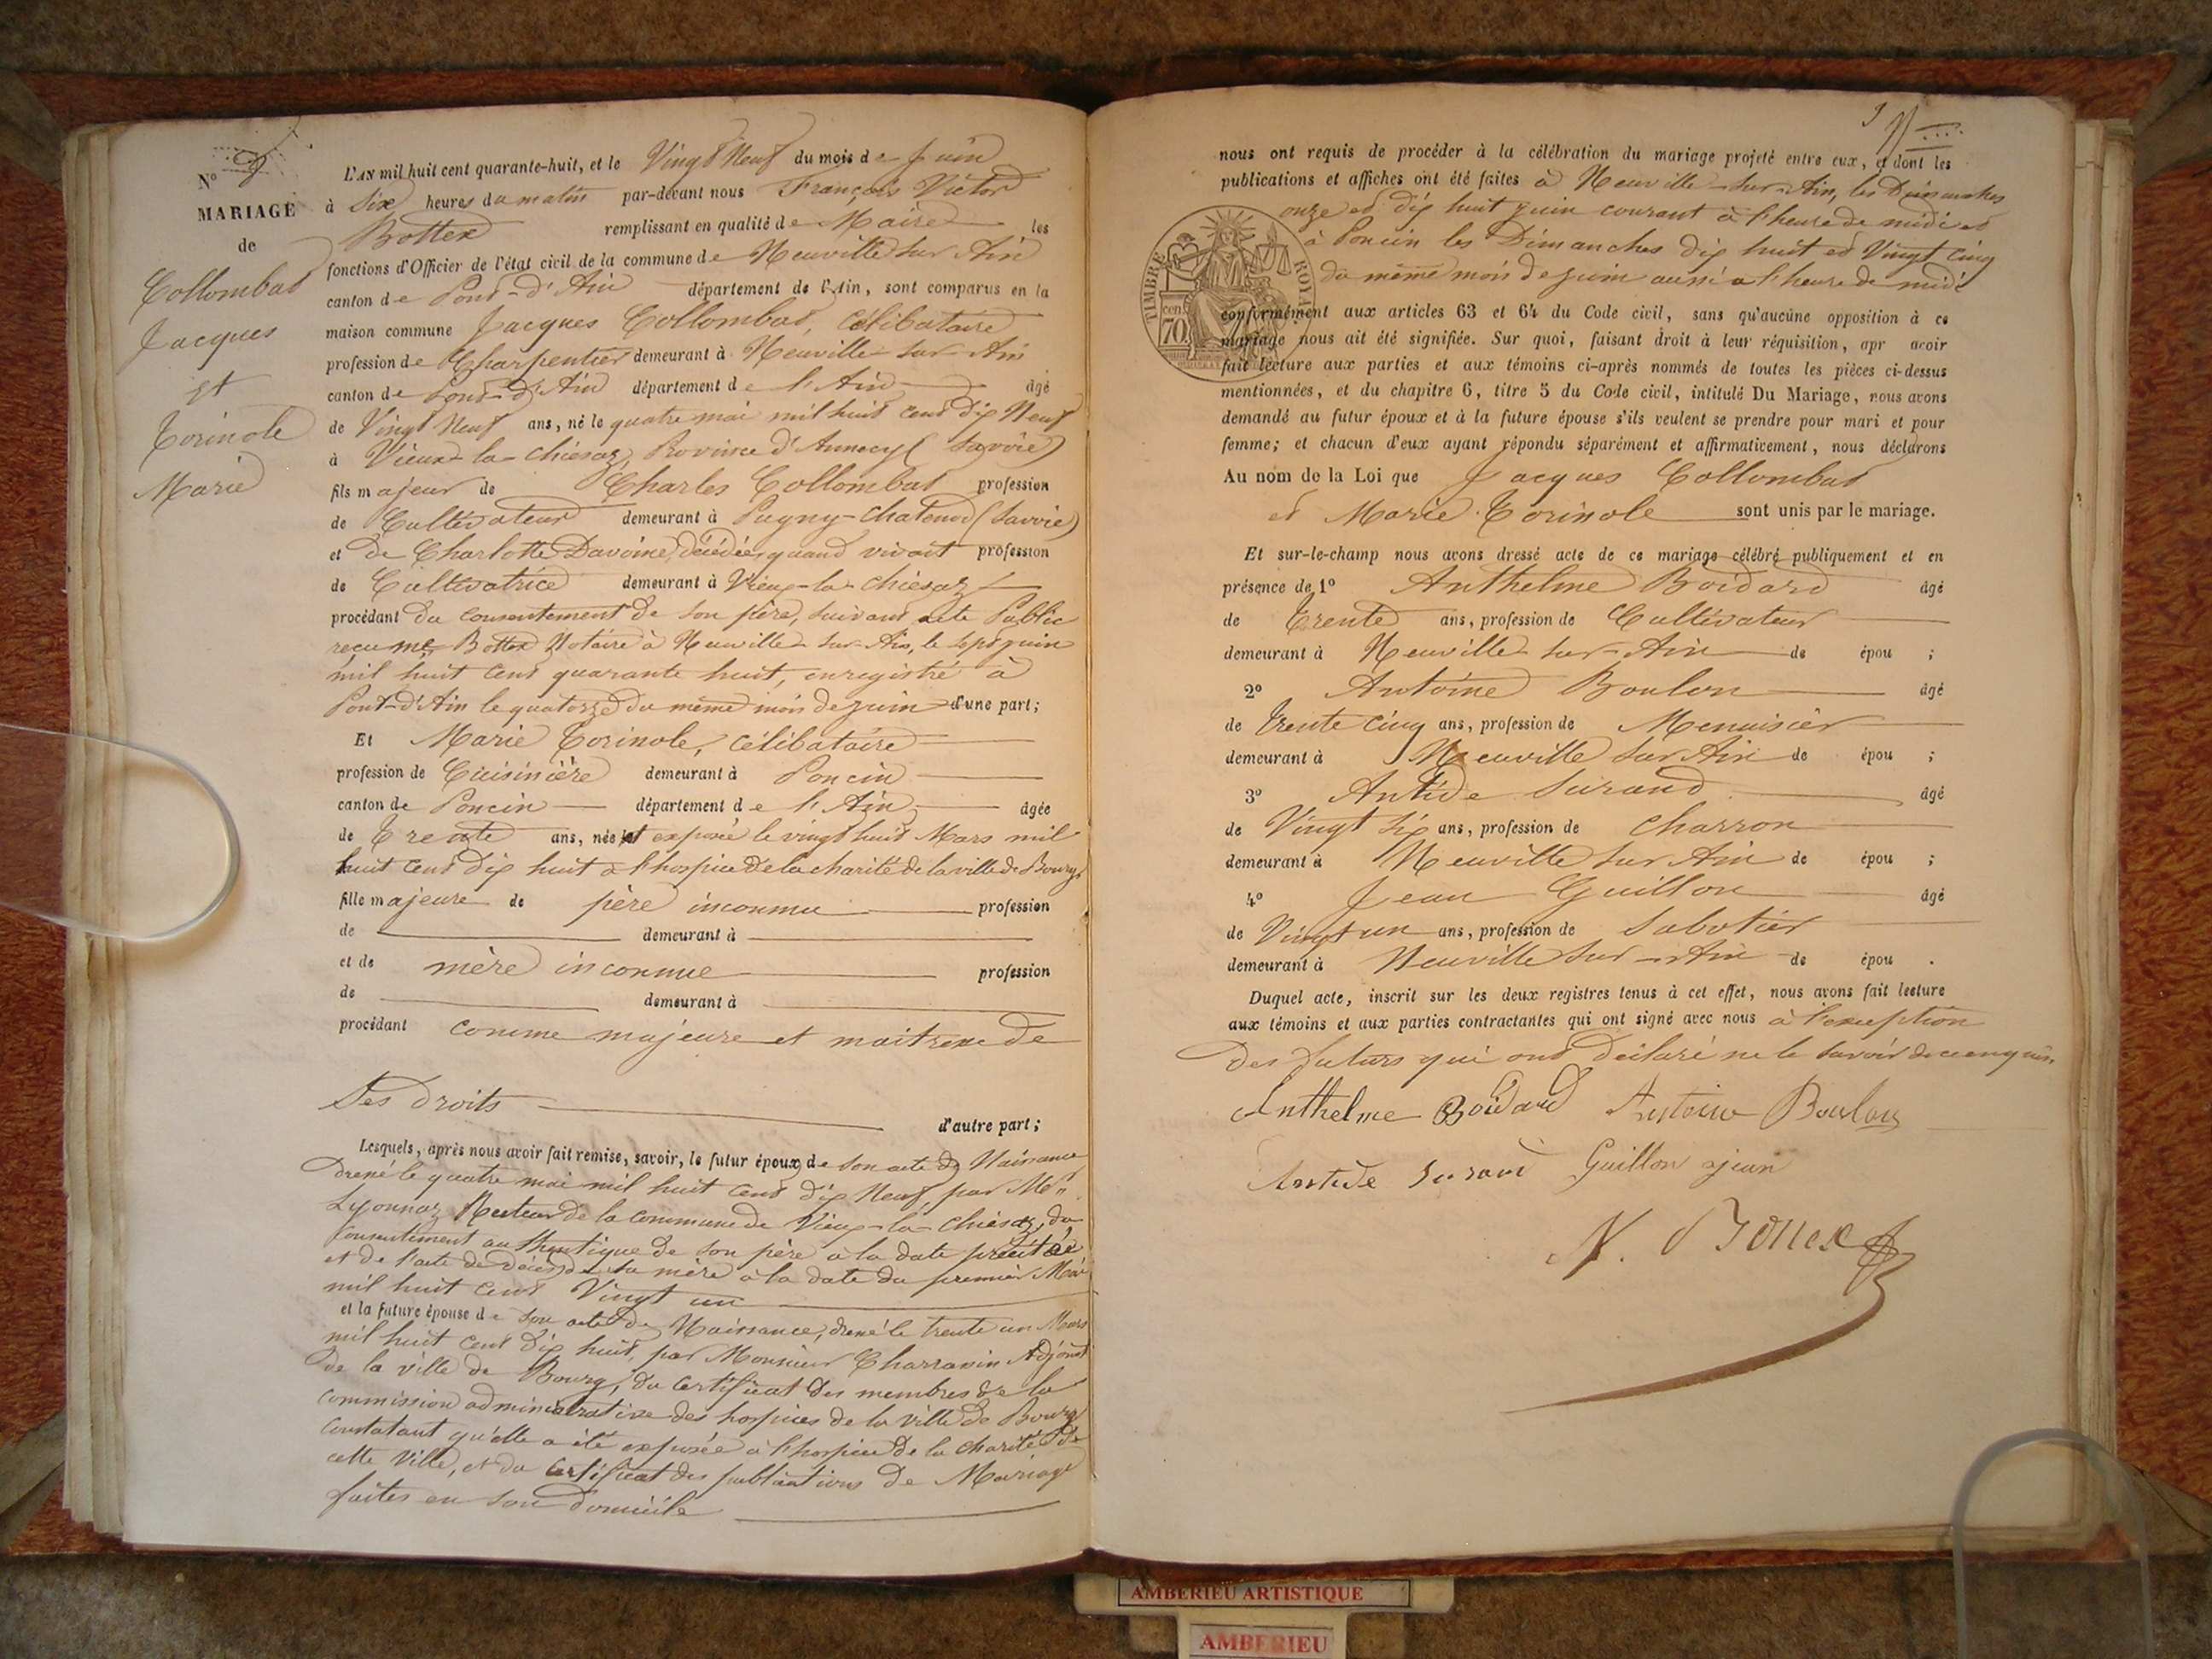 N° 9
MARIAGE
de
Collombat
Jacques
et
Torinole
Marie
L'AN mil huit cent quarante-huit, et le Vingt Neuf du mois de Juin
à Six heures du matin par-devant nous François Victor
Bottex remplissant en qualité de Maire les
fonctions d'Officier de l'état civil de la commune de Neuville sur Ain
canton de Pont-d'Ain département de l'Ain, sont comparus en la
maison commune Jacques Collombat, Célibataire
profession de Charpentier demeurant à Neuville-sur-Ain
canton de Pont-d'Ain département de l'Ain âgé
de Vingt Neuf ans, né le quatre mai mil huit cent dix Neuf
à Vieux-la-Chiésaz, Province d'Annecy (Savoie)
fils majeur de Charles Collombat profession
de Cultivateur demeurant à Pugny-Chatenod (Savoie)
et de Charlotte Davoine, décédée, quand vivait profession
de Cultivatrice demeurant à Vieux-la-Chiésaz
procédant du consentement de son père, suivant acte Public
reçu me Bottex Notaire à Neuville-sur-Ain, le sept juin
mil huit cent quarante huit, enregistré à
Pont-d'Ain le quatorze du même mois de juin d'une part;
Et Marie Torinole, célibataire
profession de Cuisinière demeurant à Poncin
canton de Poncin département de l'Ain âgée
de Trente ans, née et exposée le vingt huit Mars mil
huit cent dix huit à l'hospice de la charité de la ville de Bourg
fille majeure de père inconnu profession
de demeurant à
et de mère inconnue profession
de demeurant à
procédant comme majeure et maitresse de
Ses droits
d'autre part;
Lesquels, après nous avoir fait remise, savoir, le futur époux de son acte de Naissance
dressé le quatre mai mil huit cent dix Neuf, par Mr
Lyonnaz Recteur de la commune de Vieux-la-Chiésaz, du
consentement authentique de son père à la date précitée
et de l'acte de décès de sa mère à la date du premier Mai
mil huit cent Vingt un
et la future épouse de son acte de Naissance, dressé le trente un Mars
mil huit cent dix huit, par Monsieur Charravin Adjoint
de la ville de Bourg, du certificat des membres de la
commission administrative des hospices de la ville de Bourg
constatant qu'elle a été exposée à l'hospice de la charité de
cette Ville, et du certificat des publications de Mariage
faites en son domicile
nous ont requis de procéder à la célébration du mariage projeté entre eux, et dont les
publications et affiches ont été faites à Neuville-sur-Ain, les Dimanches
onze et dix huit juin courant à l'heure de midi et
à Poncin les Dimanches dix huit et Vingt Cinq
du même mois de juin aussi à l'heure de midi
TIMBRE ROYAL
cen. 70
conformément aux articles 63 et 64 du Code civil, sans qu'aucune opposition à ce
mariage nous ait été signifiée. Sur quoi, faisant droit à leur réquisition, apr avoir
fait lecture aux parties et aux témoins ci-après nommés de toutes les pièces ci-dessus
mentionnées, et du chapitre 6, titre 5 du Code civil, intitulé Du Mariage, nous avons
demandé au futur époux et à la future épouse s'ils veulent se prendre pour mari et pour
femme; et chacun d'eux ayant répondu séparément et affirmativement, nous déclarons
Au nom de la Loi que Jacques Collombat
et Marie Torinole sont unis par le mariage.
Et sur-le-champ nous avons dressé acte de ce mariage célébré publiquement et en
présence de 1° Anthelme Boidard âgé
de Trente ans, profession de Cultivateur
demeurant à Neuville-sur-Ain de épou ;
2° Antoine Boulon âgé
de trente cinq ans, profession de Menuisier
demeurant à Neuville sur Ain de épou ;
3° Antide Surand âgé
de Vingt six ans, profession de Charron
demeurant à Neuville sur Ain de épou ;
4° Jean Guillon âgé
de Vingt un ans, profession de Sabotier
demeurant à Neuville sur-Ain de épou .
Duquel acte, inscrit sur les deux registres tenus à cet effet, nous avons fait lecture
aux témoins et aux parties contractantes qui ont signé avec nous à l'exception
des futurs qui ont déclaré ne le savoir de ce enquis
Anthelme Boidard Antoine Boulon
Antide Surand Guillon jean
V. Bottex
AMBERIEU ARTISTIQUE
AMBERIEU